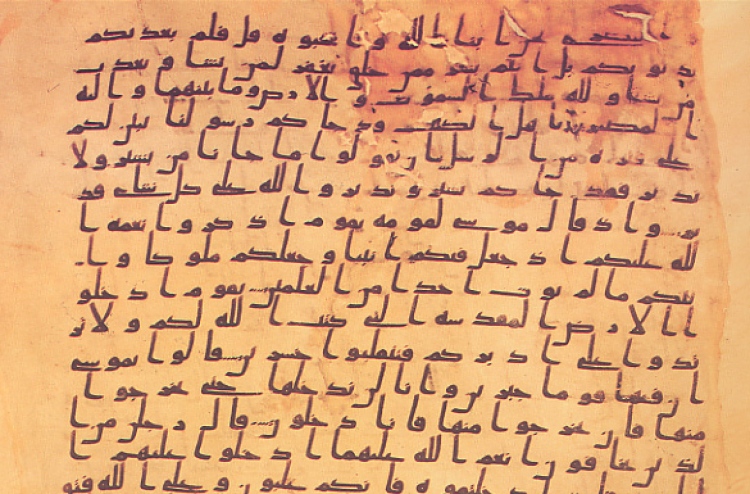 نحن ابنا الله واحبوه قل فلم يعذبكم
بذنوبكم بل انتم بشر ممن خلق يغفر لمن يشا ويعذب
من يشا ولله ملك السموت والارض وما بينهما واليه
المصير ياهل الكتب قد جاكم رسولنا يبين لكم
على فترة من الرسل ان تقولوا ما جانا من بشير ولا
نذير فقد جاكم بشير ونذير والله على كل شاي قد
ير واذ قال موسى لقومه يقوم اذكروا نعمة ا
لله عليكم اذ جعل فيكم انبيا وجعلكم ملوكا وا
تيكم ما لم يوت احدا من العلمين يقوم ادخلو
ا الارض المقدسة التي كتب الله لكم ولا تر
تدوا على ادبركم فتنقلبوا خسرين قالوا يموسى
ان فيها قوما جبرين وانا لن ندخلها حتى يخرجوا
منها فان يخرجوا منها فانا دخلون قال رجلن من ا
لذين يخافون انعم الله عليهما ادخلوا عليهم ا
دخلتموه فانكم غلبون وعلى الله فتو